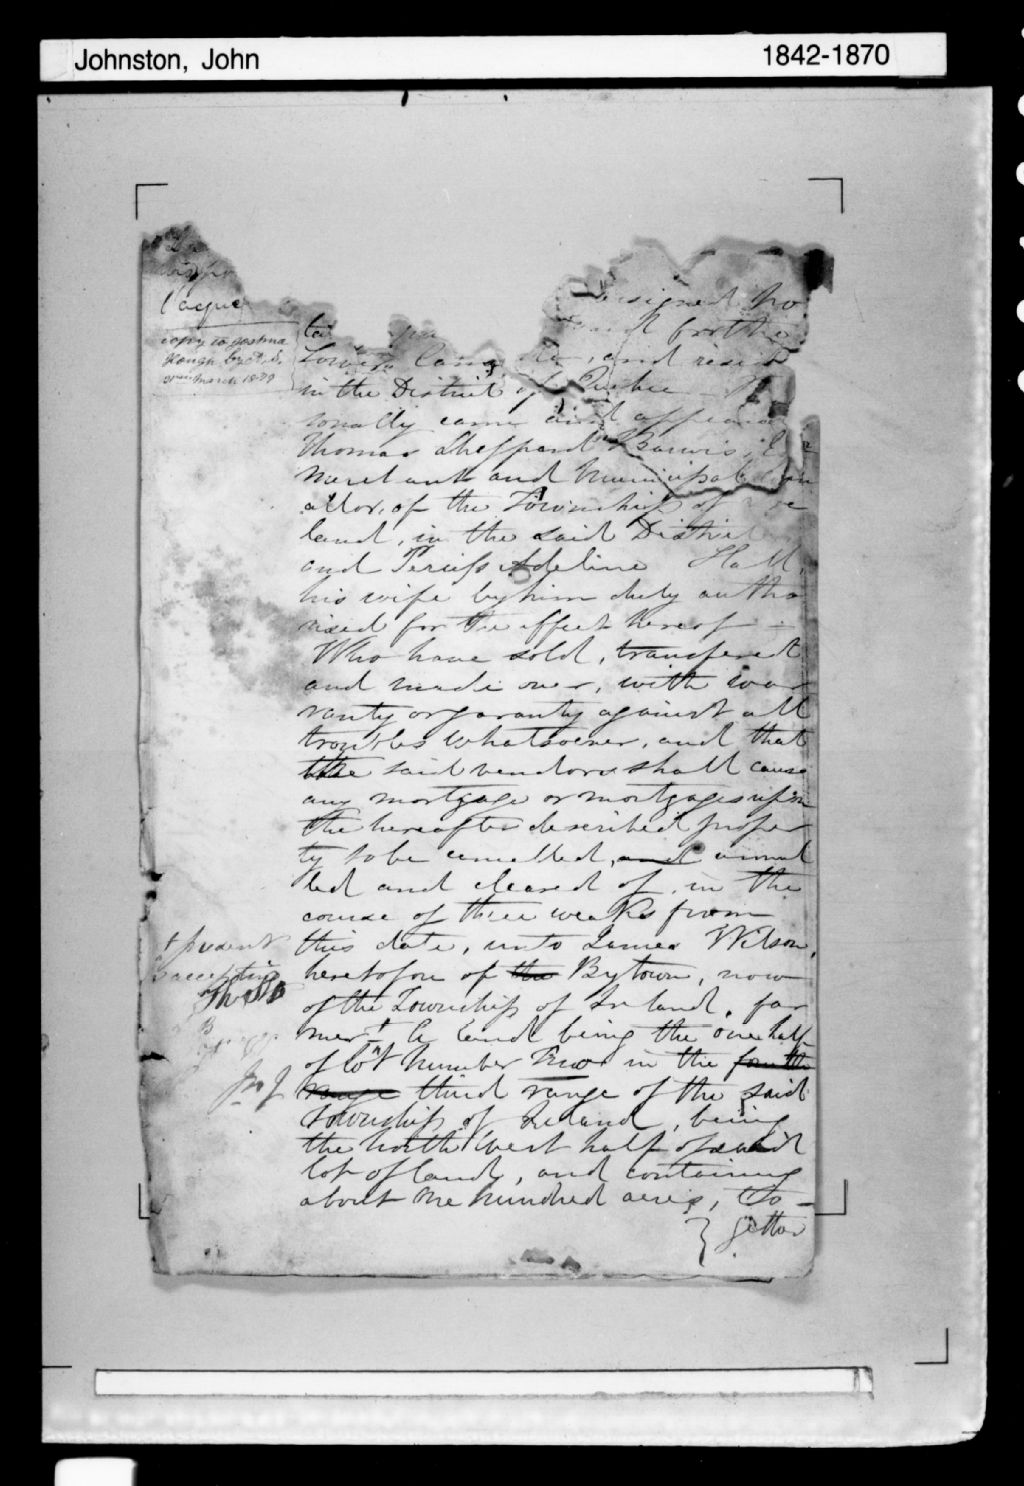 Johnston, John
1842-1870
l'acque
copy to Joshua
Keough
March 18
Lower Can
, and resid
in the District of Quebec
sonally came and appeared
Thomas Sheppard Barwis, E
Merchant and Municipal Coun
cillor, of the Township of
land, in the said District
and Adeline Hall,
his wife by him duly autho
rised for the effect hereof -
Who have sold, transfered
and made over, with war
ranty or garanty against all
troubles whatsoever, and that
the said vendors shall cause
any mortgage or mortgages upon
the hereafter described proper
ty to be cancelled, and annul
led and cleared of, in the
course of three weaks from
this date, unto James Wilson,
heretofore of the Bytown, now
of the Township of Ireland, far
mer, + being the one half
of lot number Two in the fourth
range third range of the said
Township of Ireland, being
the north West half of said
lot of land, and containing
about one hundred acres, to-
gether
+ present
& accepting
ThSB
JnJ